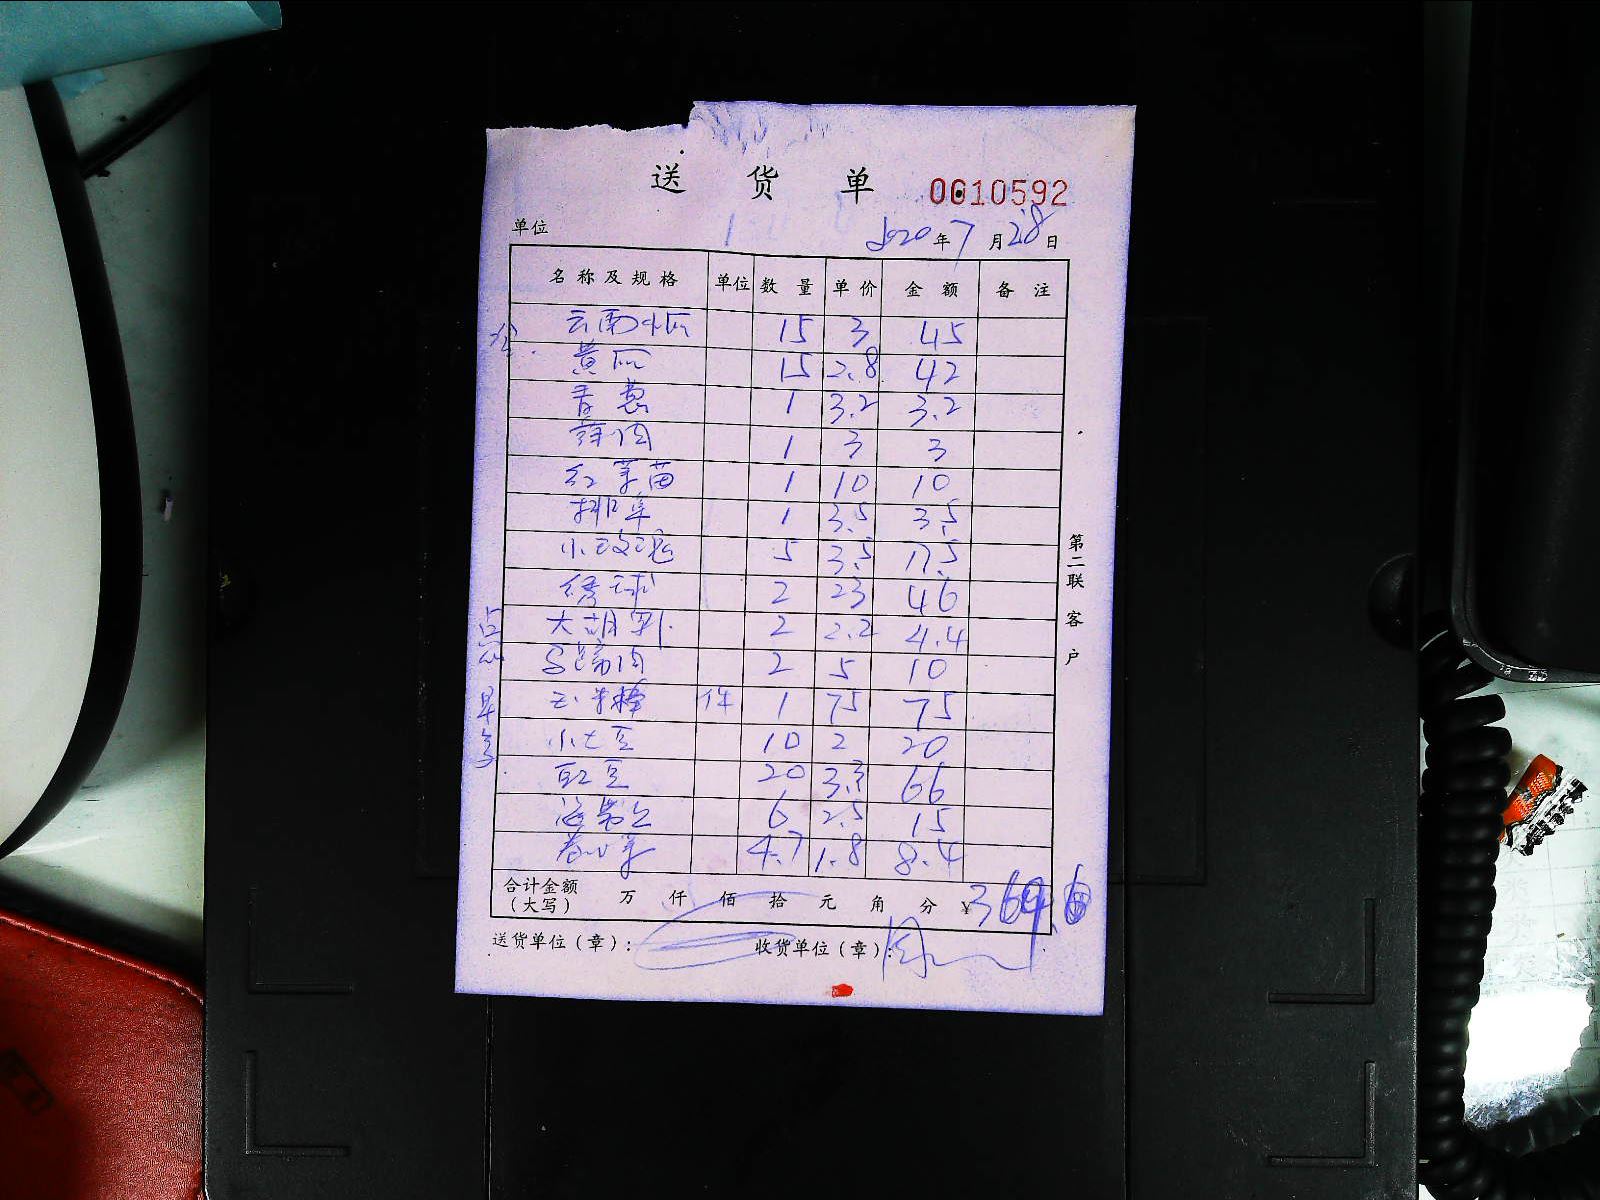 送 货 单 0010592
单位 2020年7月28日
名称及规格 单位 数量 单价 金额 备注
云南小瓜 15 3 45
黄瓜 15 2.8 42
香葱 1 3.2 3.2
蒜肉 1 3 3
红菜苗 1 10 10
排草 1 3.5 3.5
小玫瑰 5 3.5 17.5
绣球 2 23 46
大胡 2 2.2 4.4
马蹄肉 2 5 10
玉米棒 件 1 75 75
小土豆 10 2 20
豇豆 20 3.3 66
6 2.5 15
卷心菜 4.7 1.8 8.4
合计金额（大写） 万 仟 佰 拾 元 角 分 ¥369.6
送货单位（章）： 收货单位（章）：
第二联 客户
点心